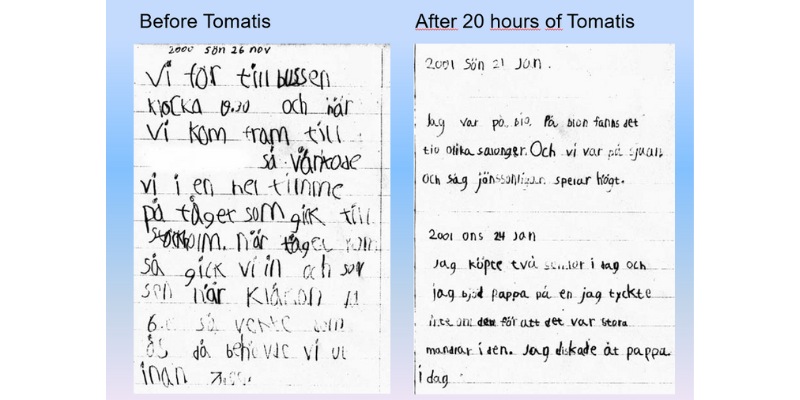 Before Tomatis
2000 sön 26 nov
Vi för till bussen
klocka 9.30 och när
vi kom fram till
så vänkade
vi i en hel timme
på tåget som gick till
när tåget kom
så gick vi in och
sen när klåkon
så vekte
ås då behövde vi ut
inan
After 20 hours of Tomatis
2001 Sön 21 Jan.
Jag var på bio. På bion fanns det
tio olika salonger. Och vi var på sjuan
och såg jönssonligan. spelar högt.
2001 ons 24 Jan
Jag köpte två semlor i dag och
jag bjöd pappa på en jag tyckte
inte om den för att det var stora
mandlar i den. Jag diskade åt pappa
i dag